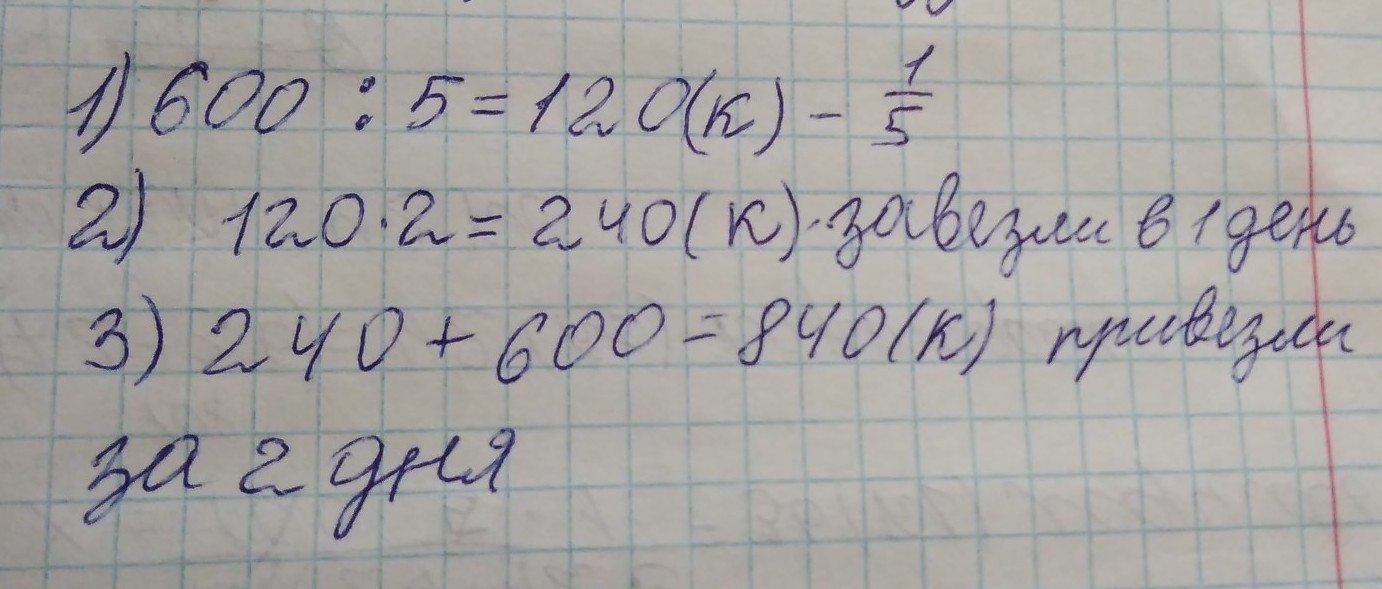 1) 600 : 5 = 120(к) - 1/5
2) 120 · 2 = 240(к) · завезли в 1 день
3) 240 + 600 = 840(к) привезли
за 2 дня